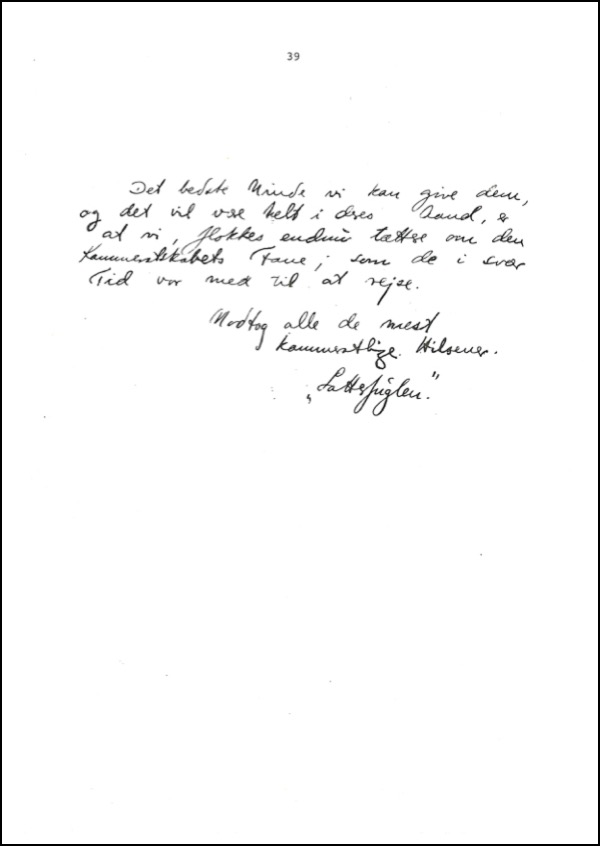 39
Det bedste Minde vi kan give dem,
og det vil være helt i deres Aand, er
at vi, flokkes endnu tættere om den
Kammeratskabets Fane; som de i svær
Tid var med til at rejse.
Modtag alle de mest
kammeratlige. Hilsener.
„Latterfuglen."